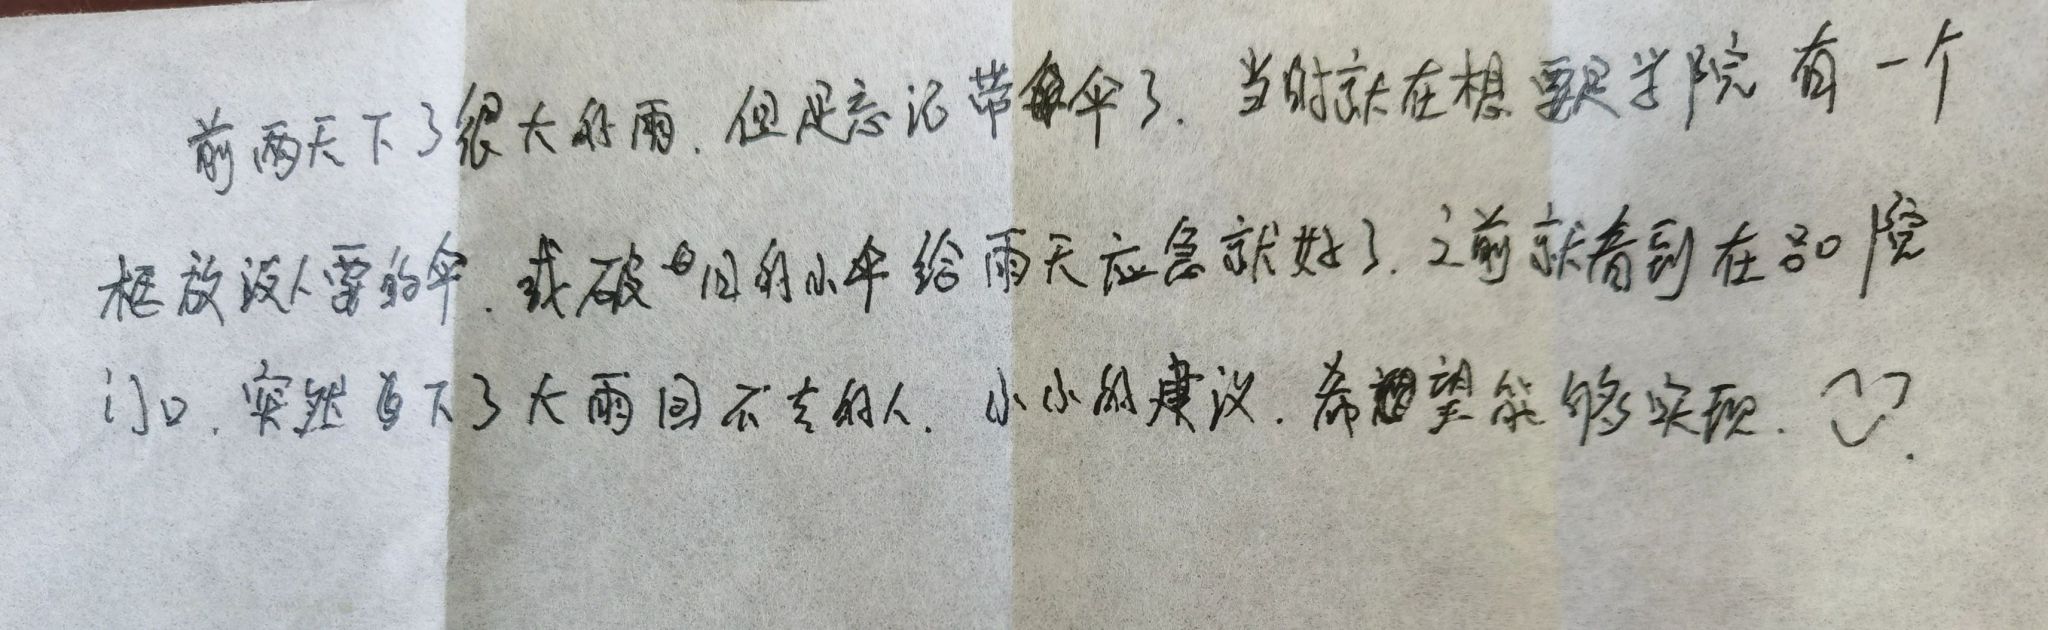 前两天下了很大的雨.但是忘记带伞了.当时就在想要是学院有一个
框放没人要的伞.或破旧的小伞给雨天应急就好了.之前就看到在 院
门口.突然 下了大雨回不去的人.小小的建议.希望能够实现.